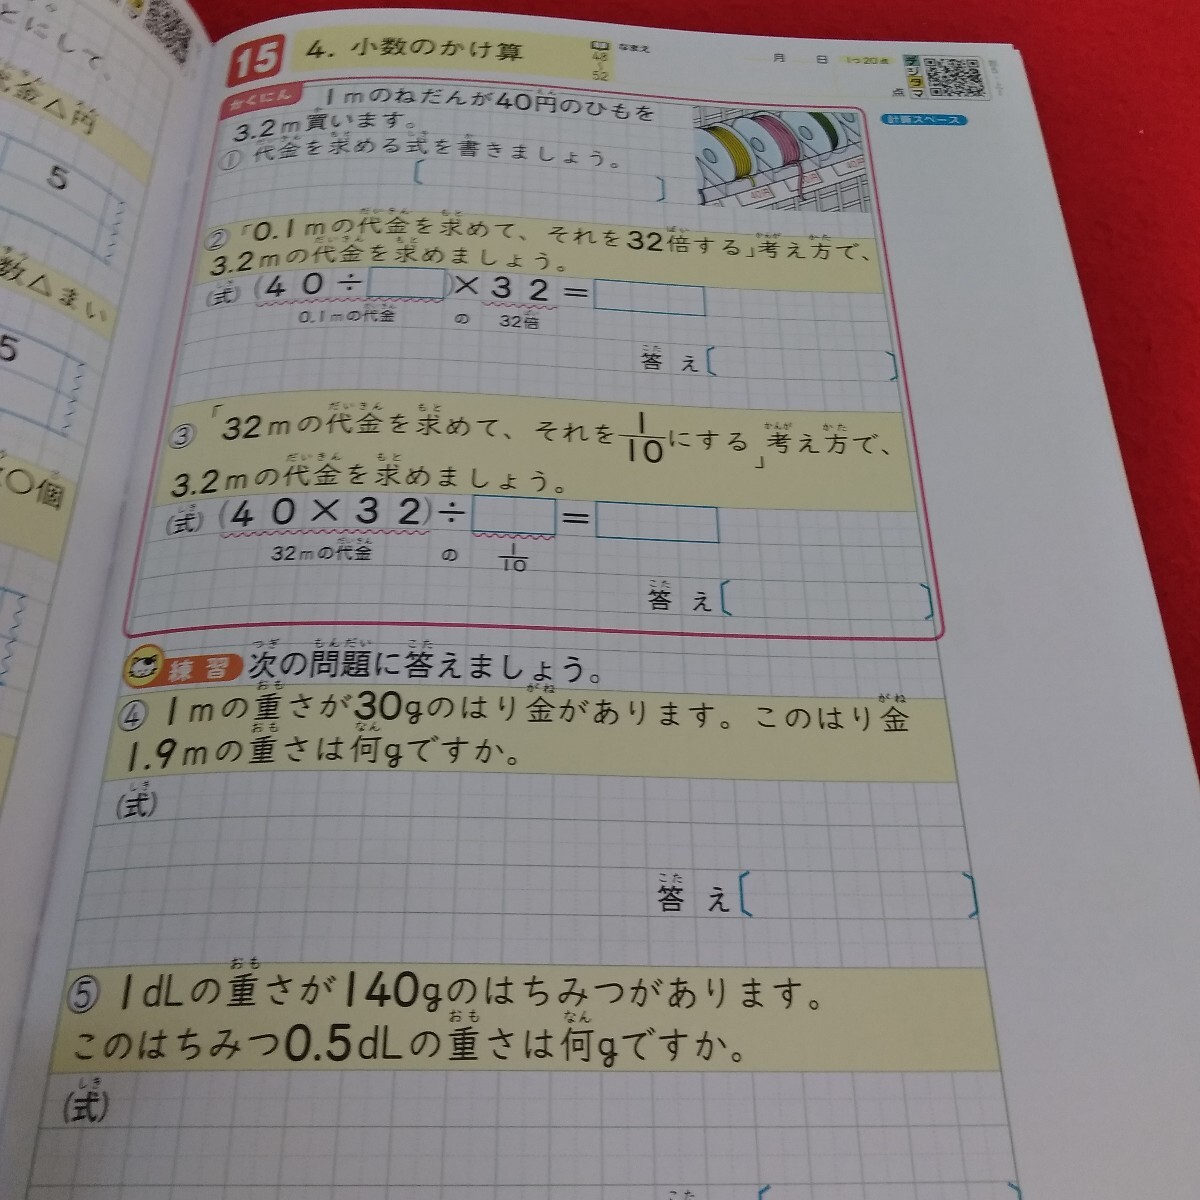 とにして、
代金△円
5
数△まい
5
○個
15
4. 小数のかけ算
48
〜
52
なまえ
月 日
1つ20点
デジタマ
点
計算スペース
かくにん
1mのねだんが40円のひもを
3.2m買います。
① 代金を求める式を書きましょう。
40円
40円
② 「0.1mの代金を求めて、それを32倍する」考え方で、
3.2mの代金を求めましょう。
(式) (40÷ )×32=
0.1mの代金 の 32倍
答え
③ 「32mの代金を求めて、それを1/10にする」考え方で、
3.2mの代金を求めましょう。
(式) (40×32)÷ =
32mの代金 の 1/10
答え
練習 次の問題に答えましょう。
④ 1mの重さが30gのはり金があります。このはり金
1.9mの重さは何gですか。
(式)
答え
⑤ 1dLの重さが140gのはちみつがあります。
このはちみつ0.5dLの重さは何gですか。
(式)
こた